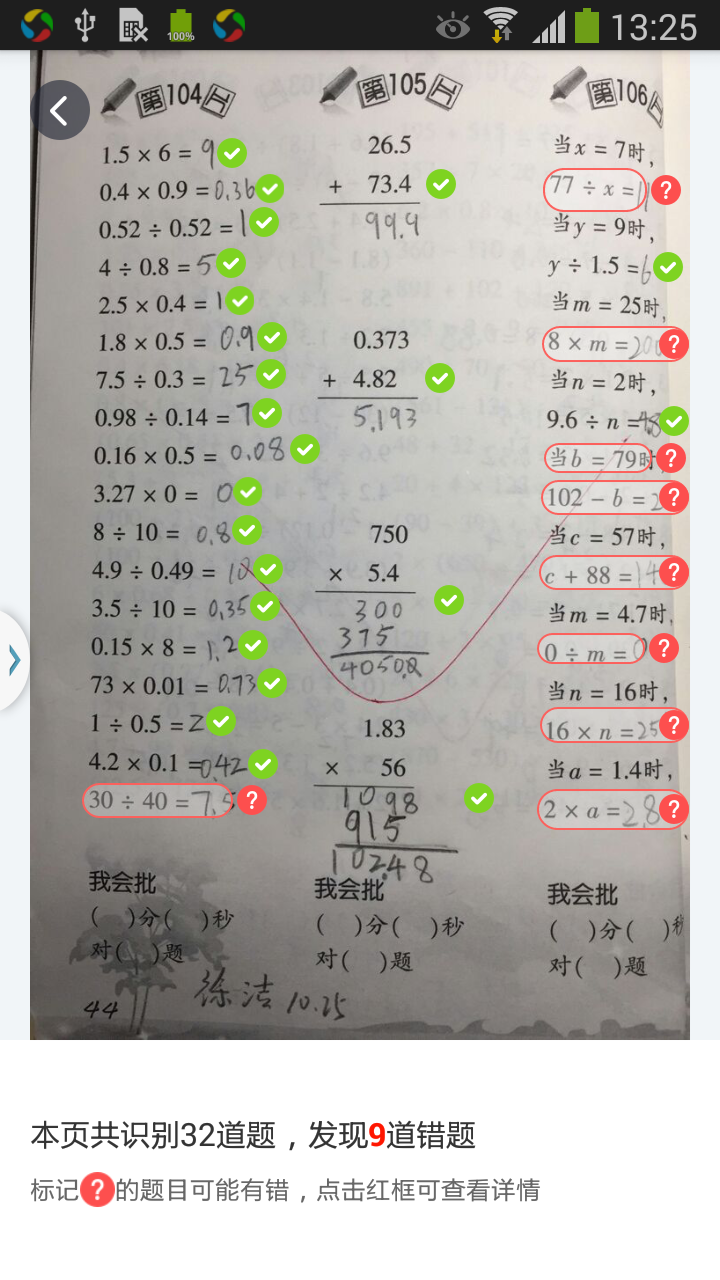 100%
13:25
第104页
1.5 × 6 = 9
0.4 × 0.9 = 0.36
0.52 ÷ 0.52 = 1
4 ÷ 0.8 = 5
2.5 × 0.4 = 1
1.8 × 0.5 = 0.9
7.5 ÷ 0.3 = 25
0.98 ÷ 0.14 = 7
0.16 × 0.5 = 0.08
3.27 × 0 = 0
8 ÷ 10 = 0.8
4.9 ÷ 0.49 = 10
3.5 ÷ 10 = 0.35
0.15 × 8 = 1.2
73 × 0.01 = 0.73
1 ÷ 0.5 = 2
4.2 × 0.1 = 0.42
30 ÷ 40 = 7.5
我会批
( )分( )秒
对( )题
44
第105页
26.5
+ 73.4
99.9
0.373
+ 4.82
5.193
750
× 5.4
300
375
4050.0
1.83
× 56
1098
915
102.48
我会批
( )分( )秒
对( )题
徐洁 10.25
第106页
当x = 7时,
77 ÷ x = 11
当y = 9时,
y ÷ 1.5 = 6
当m = 25时,
8 × m = 200
当n = 2时,
9.6 ÷ n = 4.8
当b = 79时
102 − b = 2
当c = 57时,
c + 88 = 14
当m = 4.7时,
0 ÷ m = 0
当n = 16时,
16 × n = 25
当a = 1.4时,
2 × a = 2.8
我会批
( )分( )秒
对( )题
本页共识别32道题，发现9道错题
标记?的题目可能有错，点击红框可查看详情